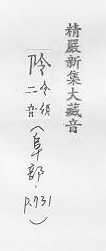 精嚴新集大藏音
阾令領二音(阜部.p.731)